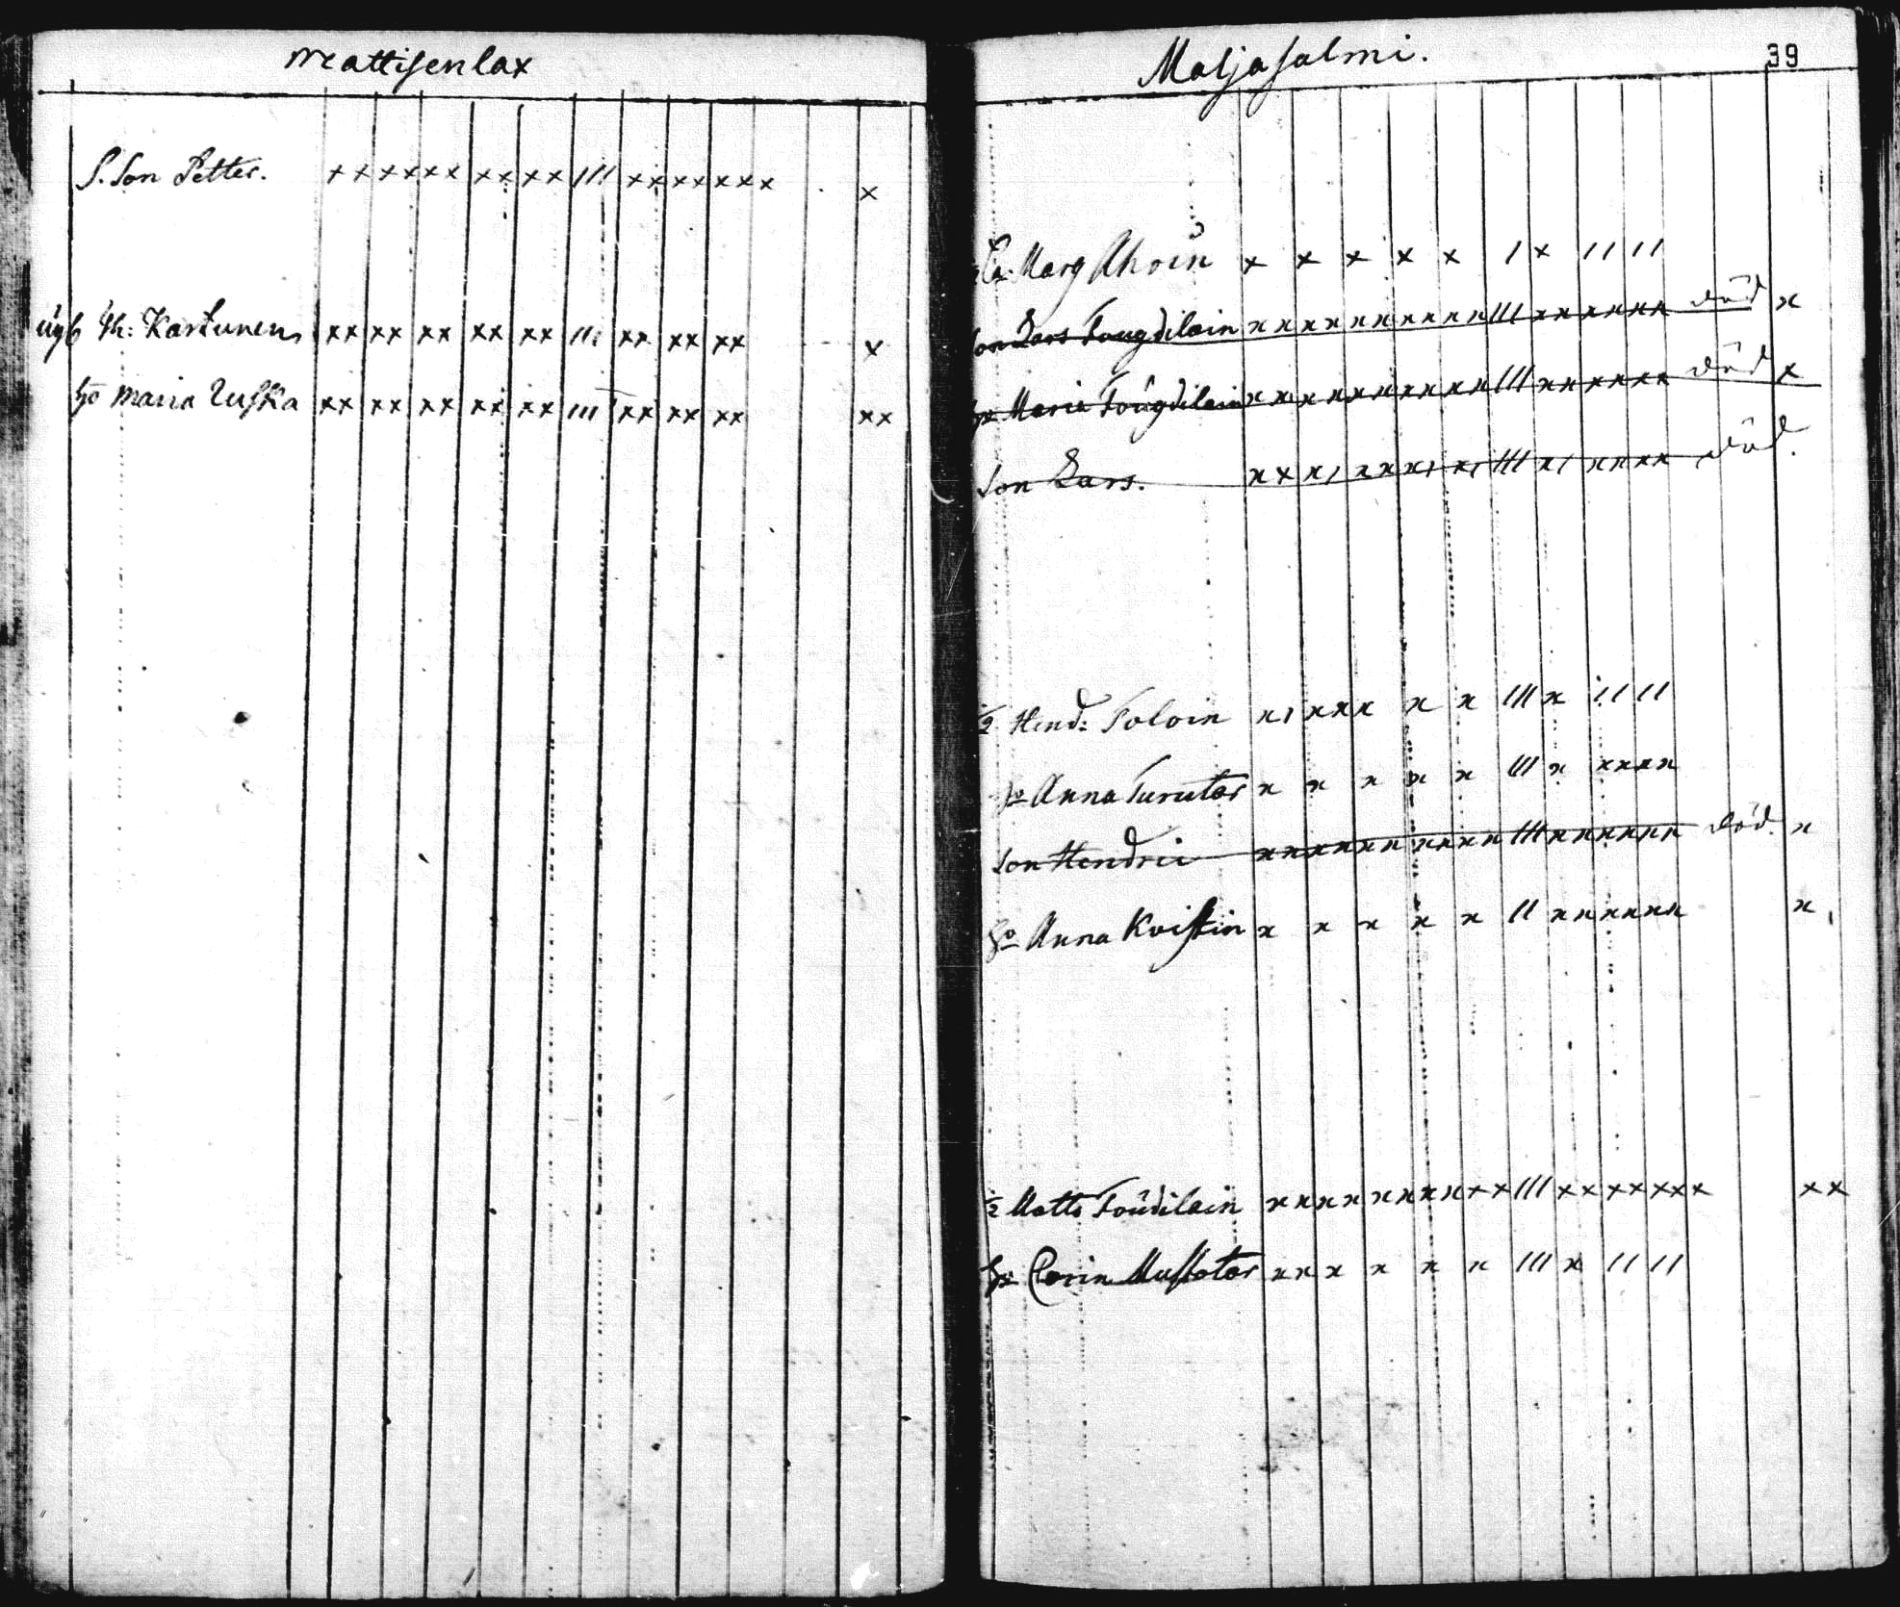 Mattisenlax
S. Son Petter. xx xx xx xx xx /// xx xx xx x x
Th: Kartunen xx xx xx xx xx /// xx xx xx x
ho Maria Ruska xx xx xx xx xx /// xx xx xx xx
Maljasalmi. 39
Marg Ahoin x x x x x / x // //
Son Lars Tougdilain xx xx xx xx xx /// xx xx xx död x
Maria Tougdilain xx xx xx xx xx /// xx xx xx död x
Son Lars. x x x/ xx x/ x/ /// x/ xx xx död.
½ Hend: Toloin x/ xx x x x /// x // //
ho Anna Turutar x x x x x /// x xx xx
Son Hendric xx xx xx xx xx /// xx xx xx död. x
ho Anna Kvistin x x x x x // xx xx xx x
½ Matts Toudilain xx xx xx xx xx /// xx xx xxx xx
ho Carin Mustotar xx x x x x /// x // //